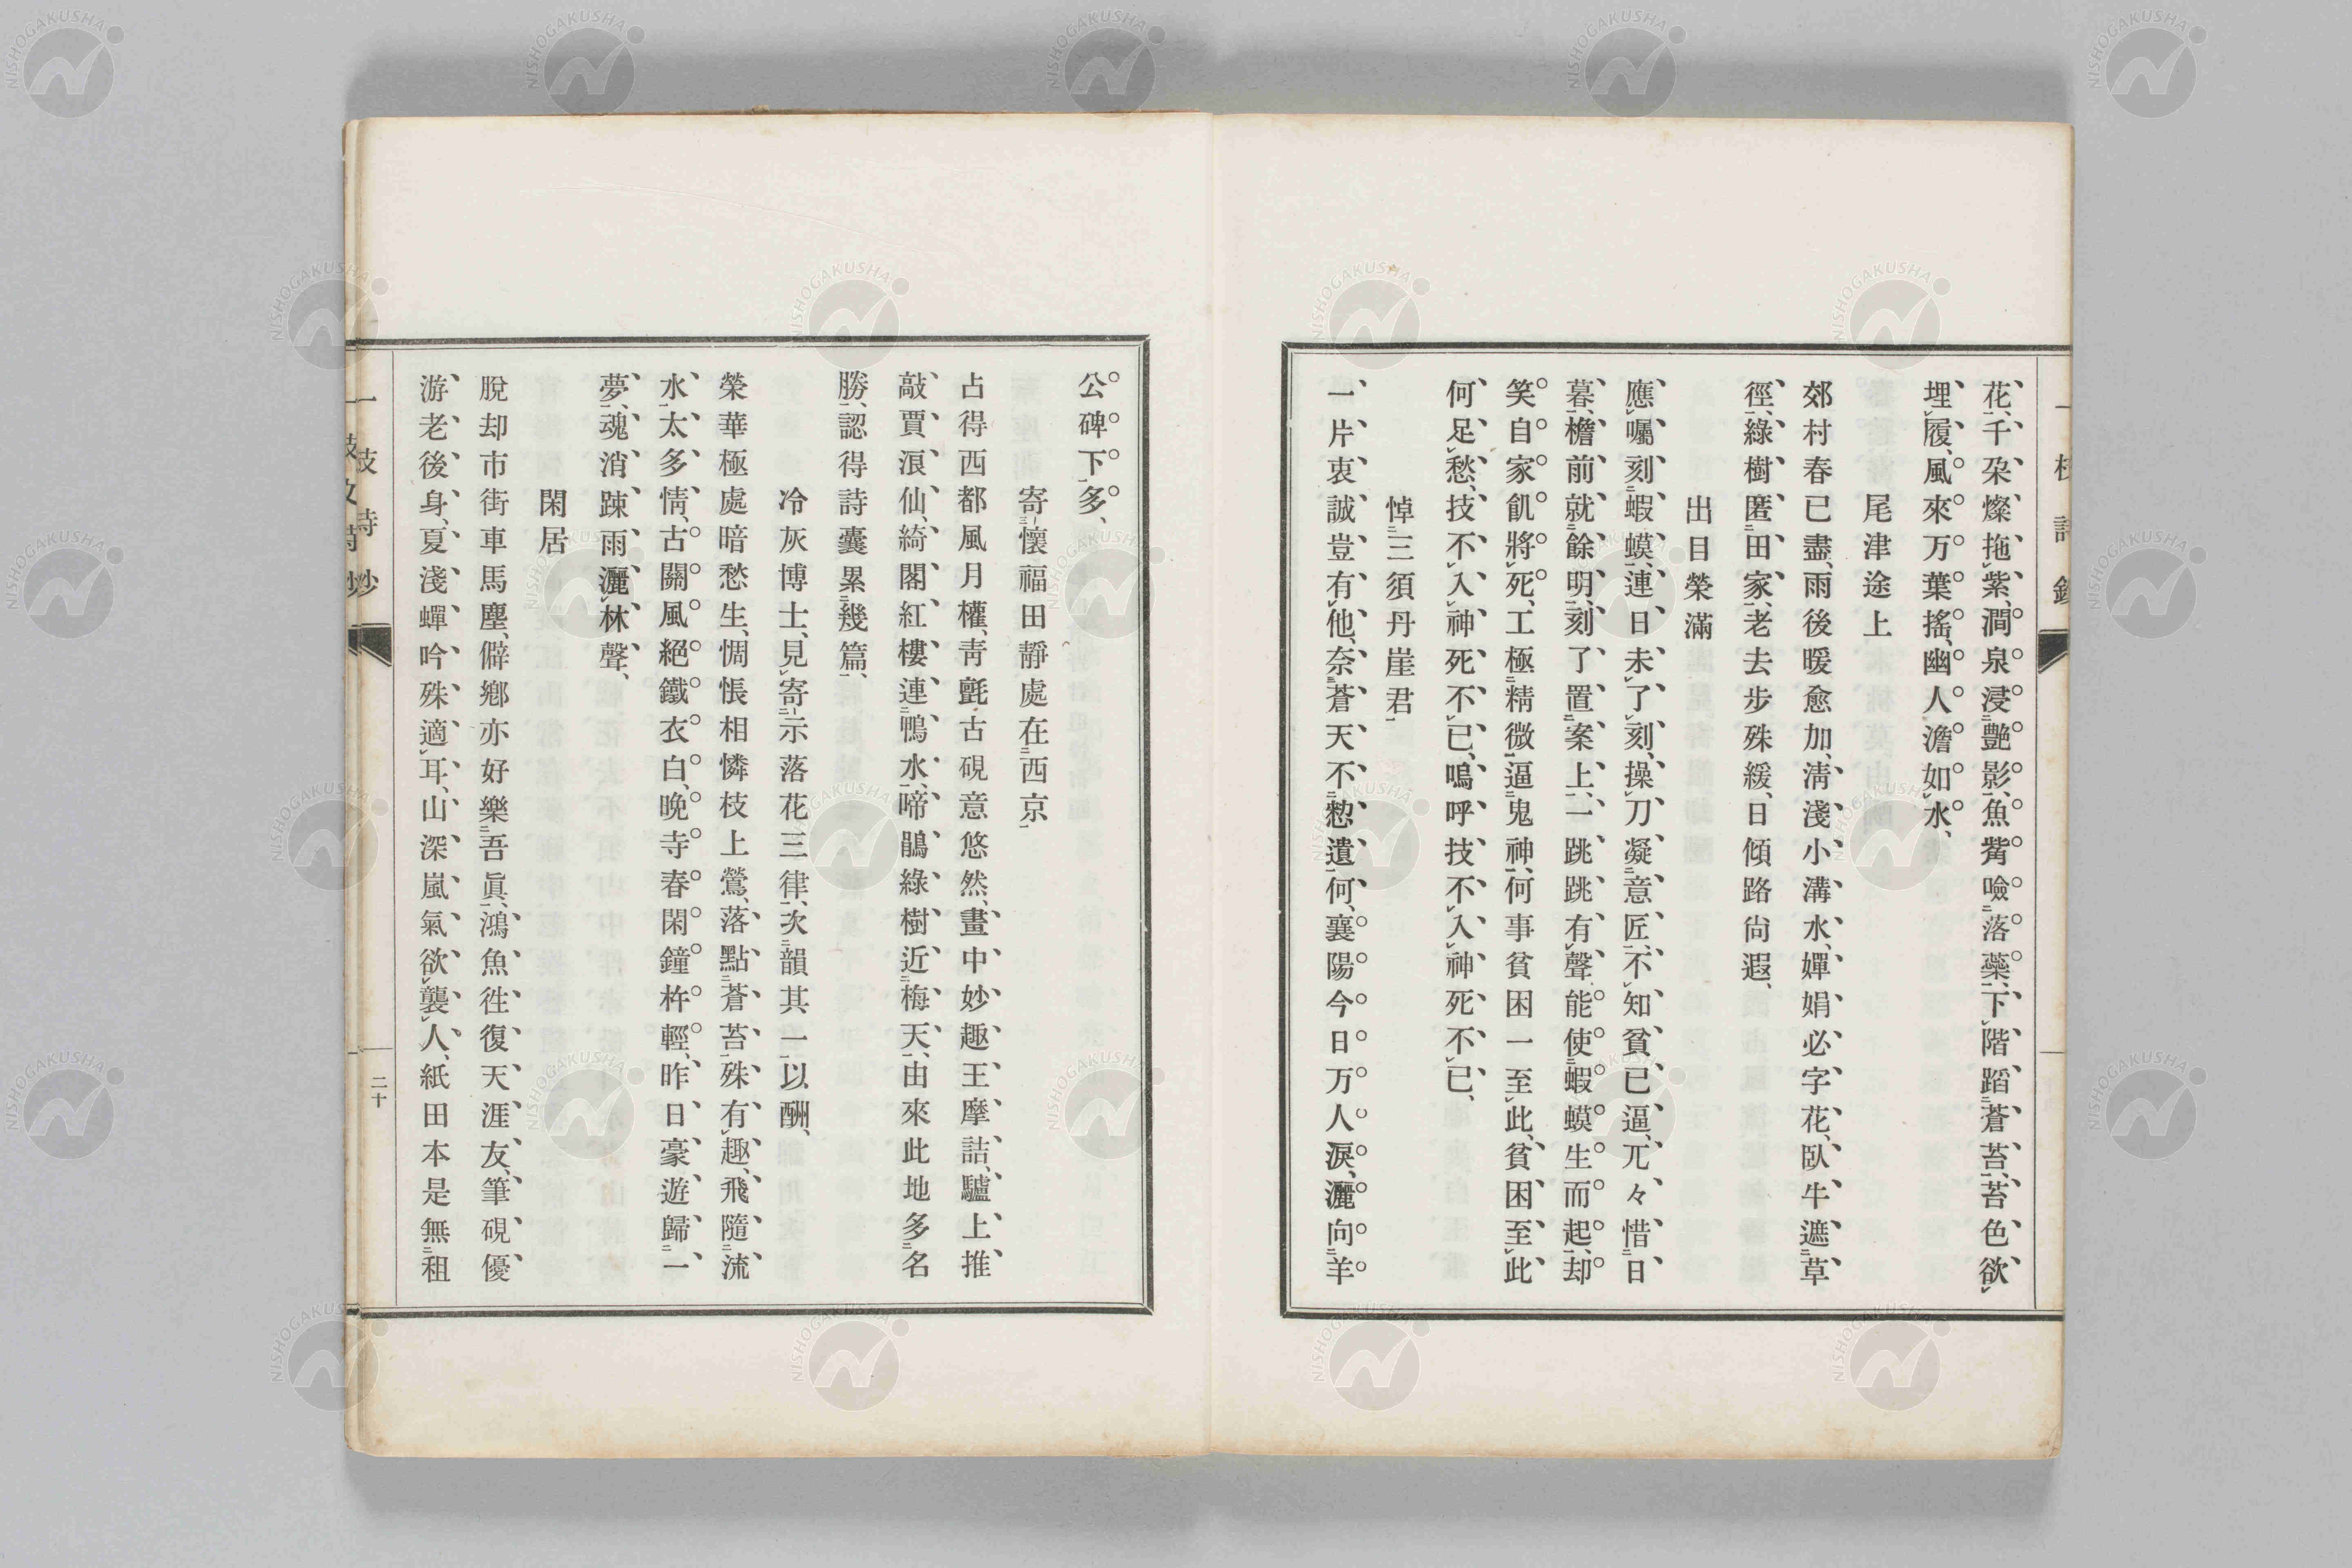 花、千朶燦拖紫、澗泉浸艷影、魚觜噞落蘂、下階蹈蒼苔、苔色欲
埋履、風來万葉搖、幽人澹如水、
尾津途上
郊村春已盡、雨後暖愈加、淸淺小溝水、嬋娟必字花、臥牛遮草
徑、綠樹匿田家、老去步殊緩、日傾路尙遐、
出目榮滿
應囑刻蝦蟆、連日未了刻、操刀凝意匠、不知貧已逼、兀々惜日
暮、檐前就餘明、刻了置案上、一跳跳有聲、能使蝦蟆生而起、却
笑自家飢將死、工極精微逼鬼神、何事貧困一至此、貧困至此
何足愁、技不入神死不已、嗚呼技不入神死不已、
悼三須丹崖君
一片衷誠豈有他、奈蒼天不憖遺何、襄陽今日万人淚、灑向羊
公碑下多、
寄懷福田靜處在西京
占得西都風月權、靑氈古硯意悠然、畫中妙趣王摩詰、驢上推
敲賈浪仙、綺閣紅樓連鴨水、啼鵑綠樹近梅天、由來此地多名
勝、認得詩囊累幾篇、
冷灰博士、見寄示落花三律、次韻其一以酬、
榮華極處暗愁生、惆悵相憐枝上鶯、落點蒼苔殊有趣、飛隨流
水太多情、古關風絕鐵衣白、晚寺春閑鐘杵輕、昨日豪遊歸一
夢、魂消踈雨灑林聲、
閑居
脫却市街車馬塵、僻鄕亦好樂吾眞、鴻魚往復天涯友、筆硯優
游老後身、夏淺蟬吟殊適耳、山深嵐氣欲襲人、紙田本是無租
一枝詩鈔
二十